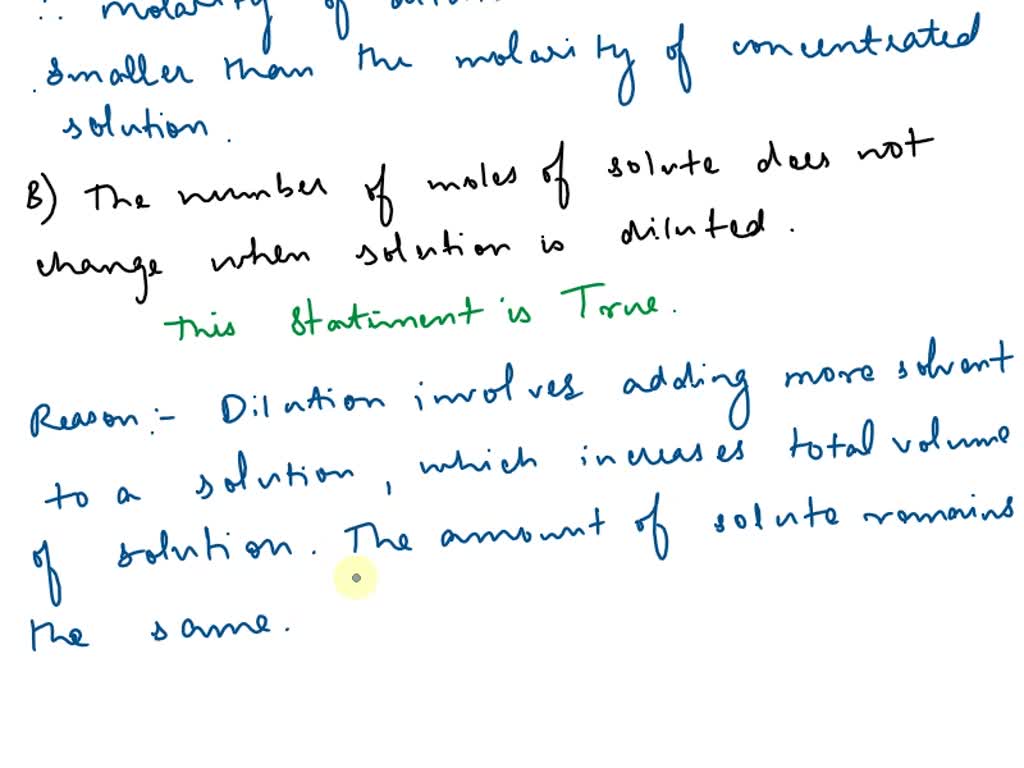 ∴ molarity of
smaller than the molarity of concentrated
solution.
B) The number of moles of solute does not
change when solution is diluted.
This Statiment is True.
Reason:- Dilution involves adding more solvent
to a solution, which increases total volume
of solution. The amount of solute remains
the same.